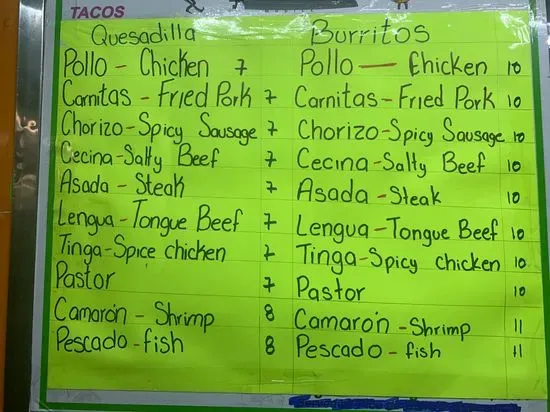 TACOS
Quesadilla
Pollo - Chicken 7
Carnitas - Fried Pork 7
Chorizo-Spicy Sausage 7
Cecina-Salty Beef 7
Asada - Steak 7
Lengua-Tongue Beef 7
Tinga-Spice chicken 7
Pastor 7
Camarón - Shrimp 8
Pescado-fish 8
Burritos
Pollo - Chicken 10
Carnitas-Fried Pork 10
Chorizo-Spicy Sausage 10
Cecina-Salty Beef 10
Asada-Steak 10
Lengua-Tongue Beef 10
Tinga-Spicy chicken 10
Pastor 10
Camarón-Shrimp 11
Pescado - fish 11